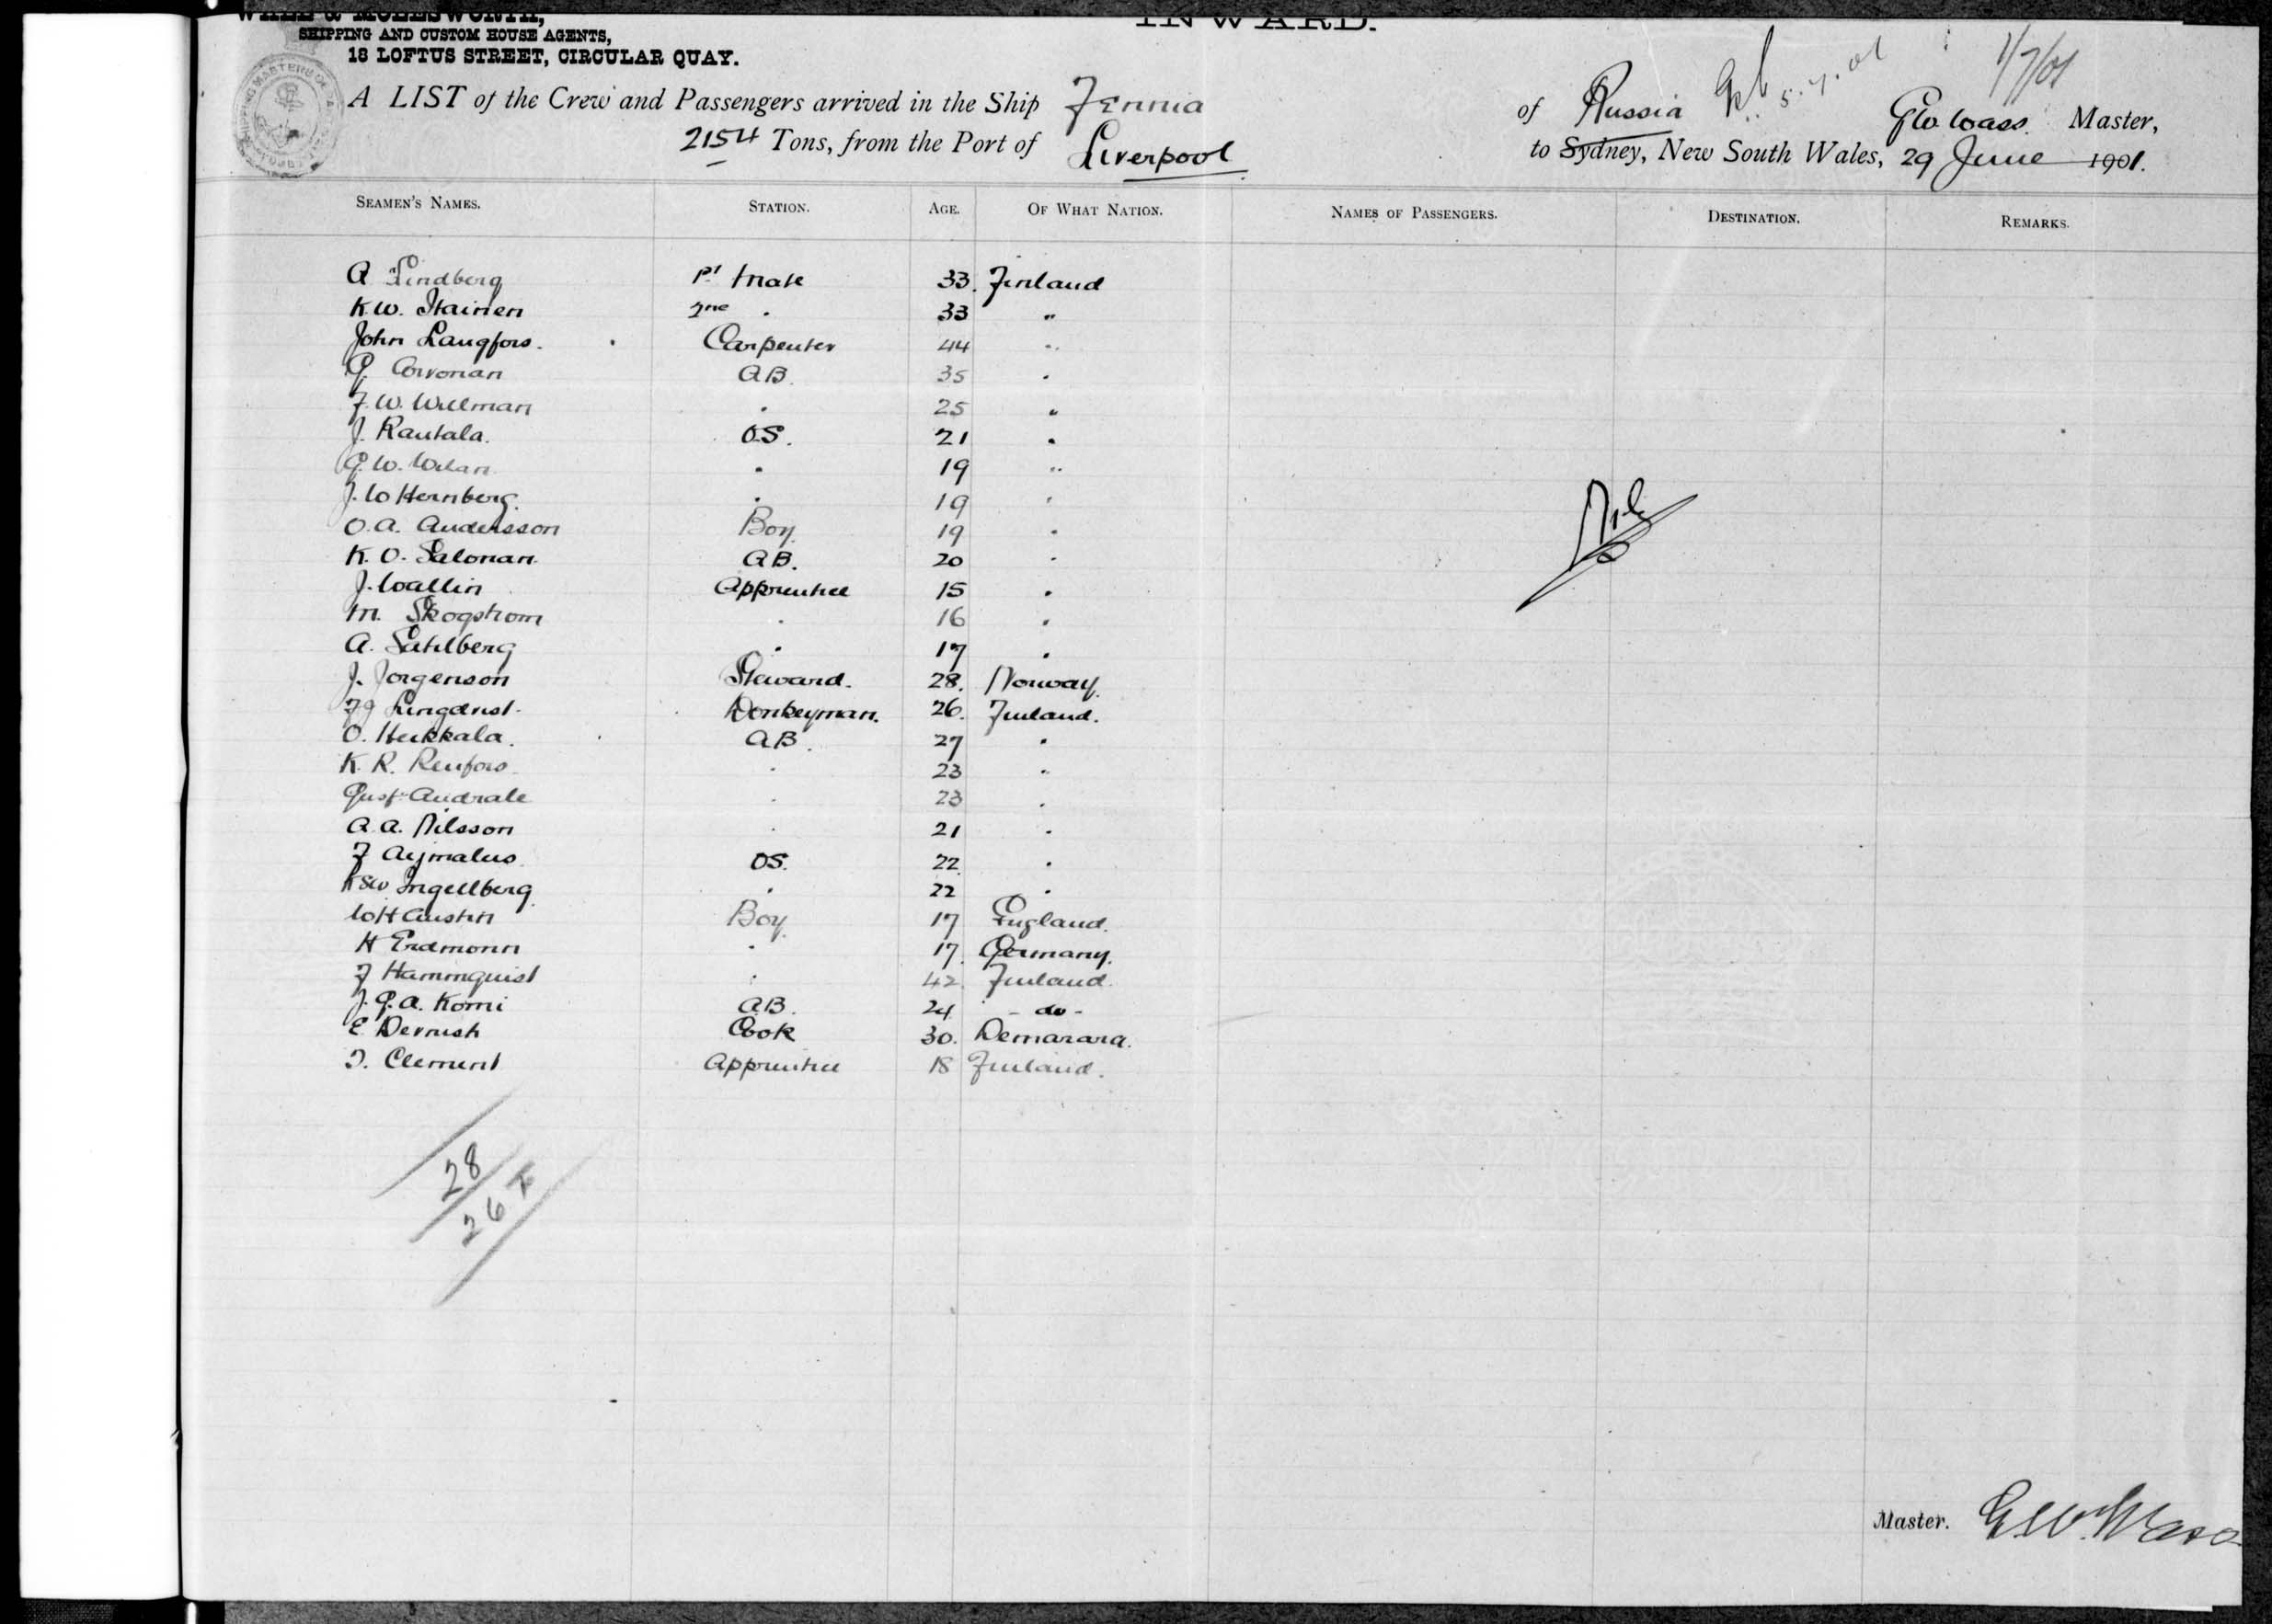 WALL & MOLESWORTH,
SHIPPING AND CUSTOM HOUSE AGENTS,
18 LOFTUS STREET, CIRCULAR QUAY.
INWARD.
1/7/01
5.7.01
A LIST of the Crew and Passengers arrived in the Ship Fennia of Russia G W Wass. Master,
2154 Tons, from the Port of Liverpool to Sydney, New South Wales, 29 June 1901.
SEAMEN'S NAMES. STATION. AGE. OF WHAT NATION. NAMES OF PASSENGERS. DESTINATION. REMARKS.
A Lindberg 1st Mate 33. Finland
K.W. Itainen 2nd " 33 "
John Langfors. Carpenter 44 "
G. Corvonan AB. 35 "
F.W. Willman " 25 "
J. Rautala. OS. 21 "
G.W. Wilan " 19 "
J. W Hernberg. " 19 "
O.A. Andersson Boy. 19 "
K.O. Salonan. AB. 20 "
J. Wallin Apprentice 15 "
M. Skogstrom " 16 "
A. Sahlberg " 17 "
J. Jorgenson Steward. 28. Norway.
Lingqvist. Donkeyman. 26. Finland.
O. Heikkala. AB. 27 "
K.R. Renfors. " 23 "
Gust Andrale " 23 "
A.A. Nilsson " 21 "
F Aymalus OS. 22 "
Ingellberg. " 22 "
W H Austin Boy. 17 England.
H Erdmonn " 17. Germany.
F Hammquist " 42. Finland.
J.G.A. Komi AB. 24 - do -
E Devnish Cook 30. Demarara.
T. Clement Apprentice 18 Finland.
28
26 F
Master. G.W. Wass